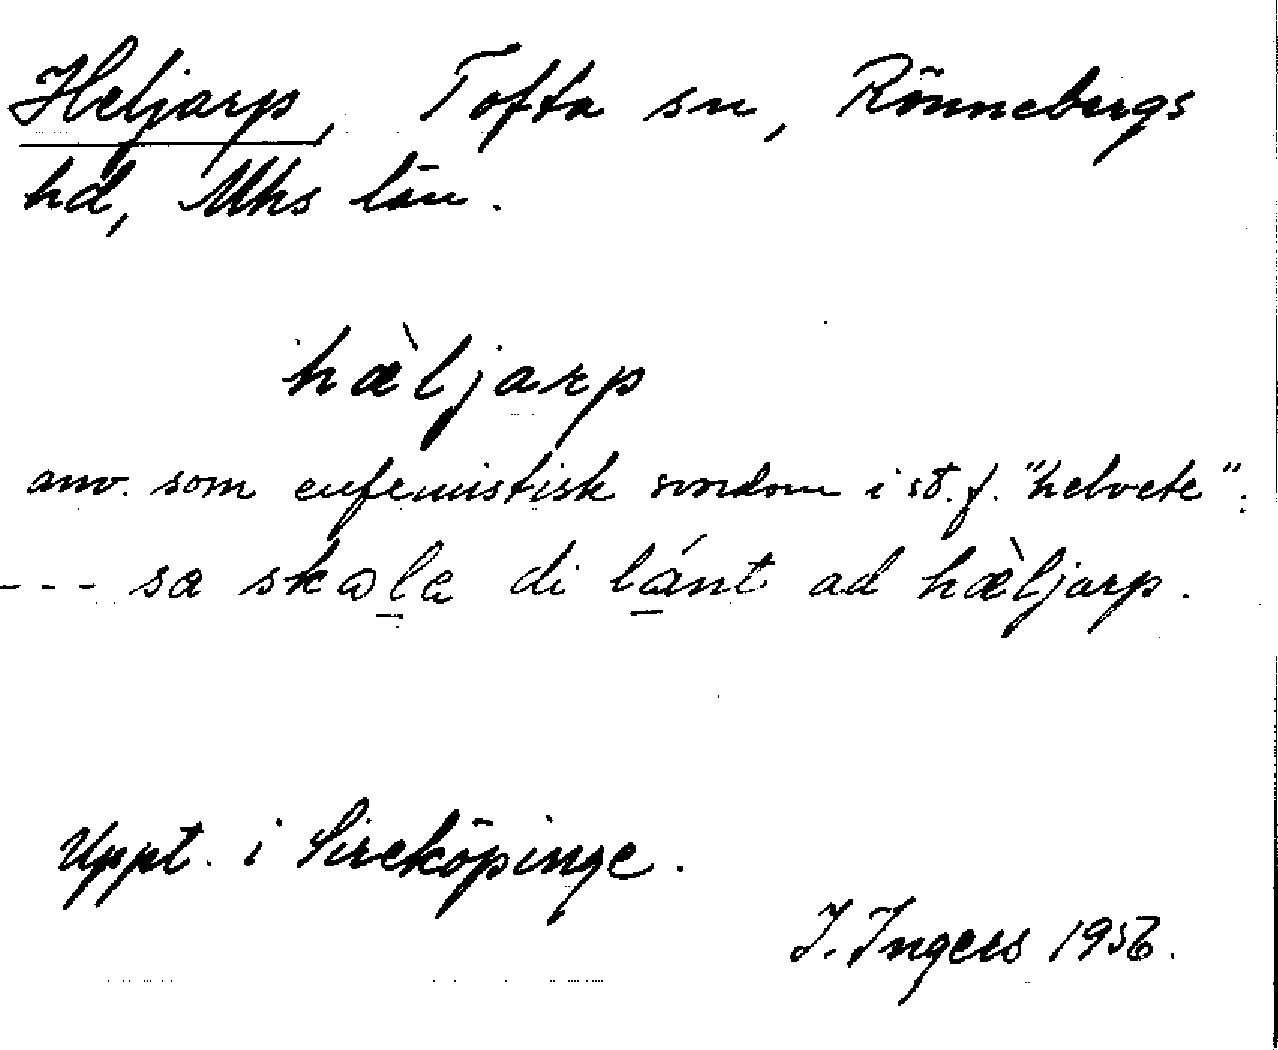 Heljarp, Tofta sn, Rönnebergs
hd, Mhs län.
hæ̀ljarp
anv. som eufemistisk svordom i st. f. "helvete".
--- sa skɷla di lánt ad hæ̀ljarp.
Uppt. i Sireköpinge.
I. Ingers 1956.